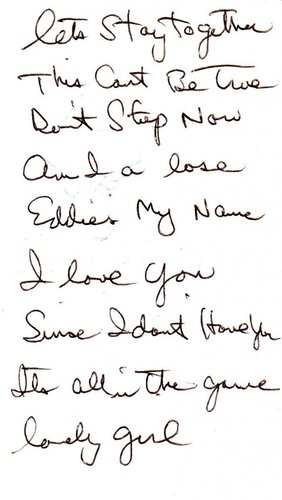 lets Stay Together
This Cant Be True
Don't Stop Now
Am I a lose
Eddie's My Name
I love you
Sinse I dont Have You
Its all in the game
lovely girl